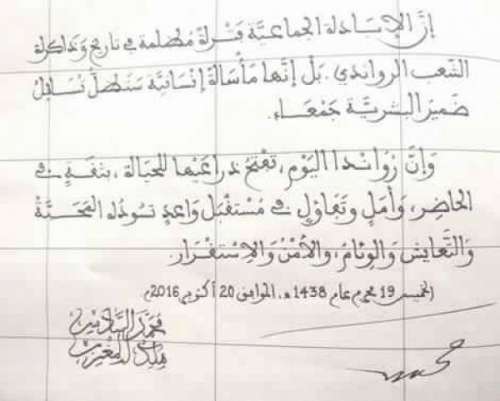 إنَّ الإبادة الجماعيَّة فترةٌ مظلمة في تاريخ وذاكرة
الشَّعب الرواندي. بل إنَّها مأساةٌ إنسانيَّة ستظلُّ تُسائِلُ
ضميرَ البشريَّة جمعاء.
وإنَّ رُواندا اليَوْمَ، تفتحُ ذراعَيْها للحياة، بثقةٍ في
الحاضِر، وأملٍ وتفاؤلٍ في مُستقبَل واعدٍ تسُودُه المحبَّةُ
والتَّعايش والوِئام، والأمْنُ والاستقرار.
الخميس 19 محرم عام 1438 هـ، الموافق 20 أكتوبر 2016م
محمد السادس
ملك المغرب